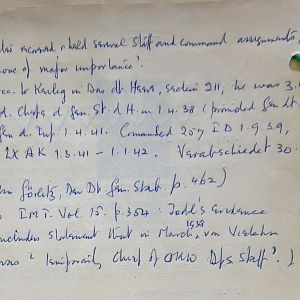 received & held several staff and command assignments
none of major importance'.
acc. to Keilig in Das dt. Heer, section 211, he was 3.
d. Chefs d. Gen. St. d. H. on 1.4.38 (promoted Gen. Lt.
Gen. d. Inf. 1.4.41. Commanded 257 I D 1.9.39,
LX AK 1.3.41 - 1.1.42. Verabschiedet 30.
Görlitz, Der Dt. Gen. Stab. p. 462)
IMT. Vol. 15. p. 354: Jodl's evidence
includes statement that in March 1939, von Viebahn
was "temporarily chief of OKW Ops Staff".)